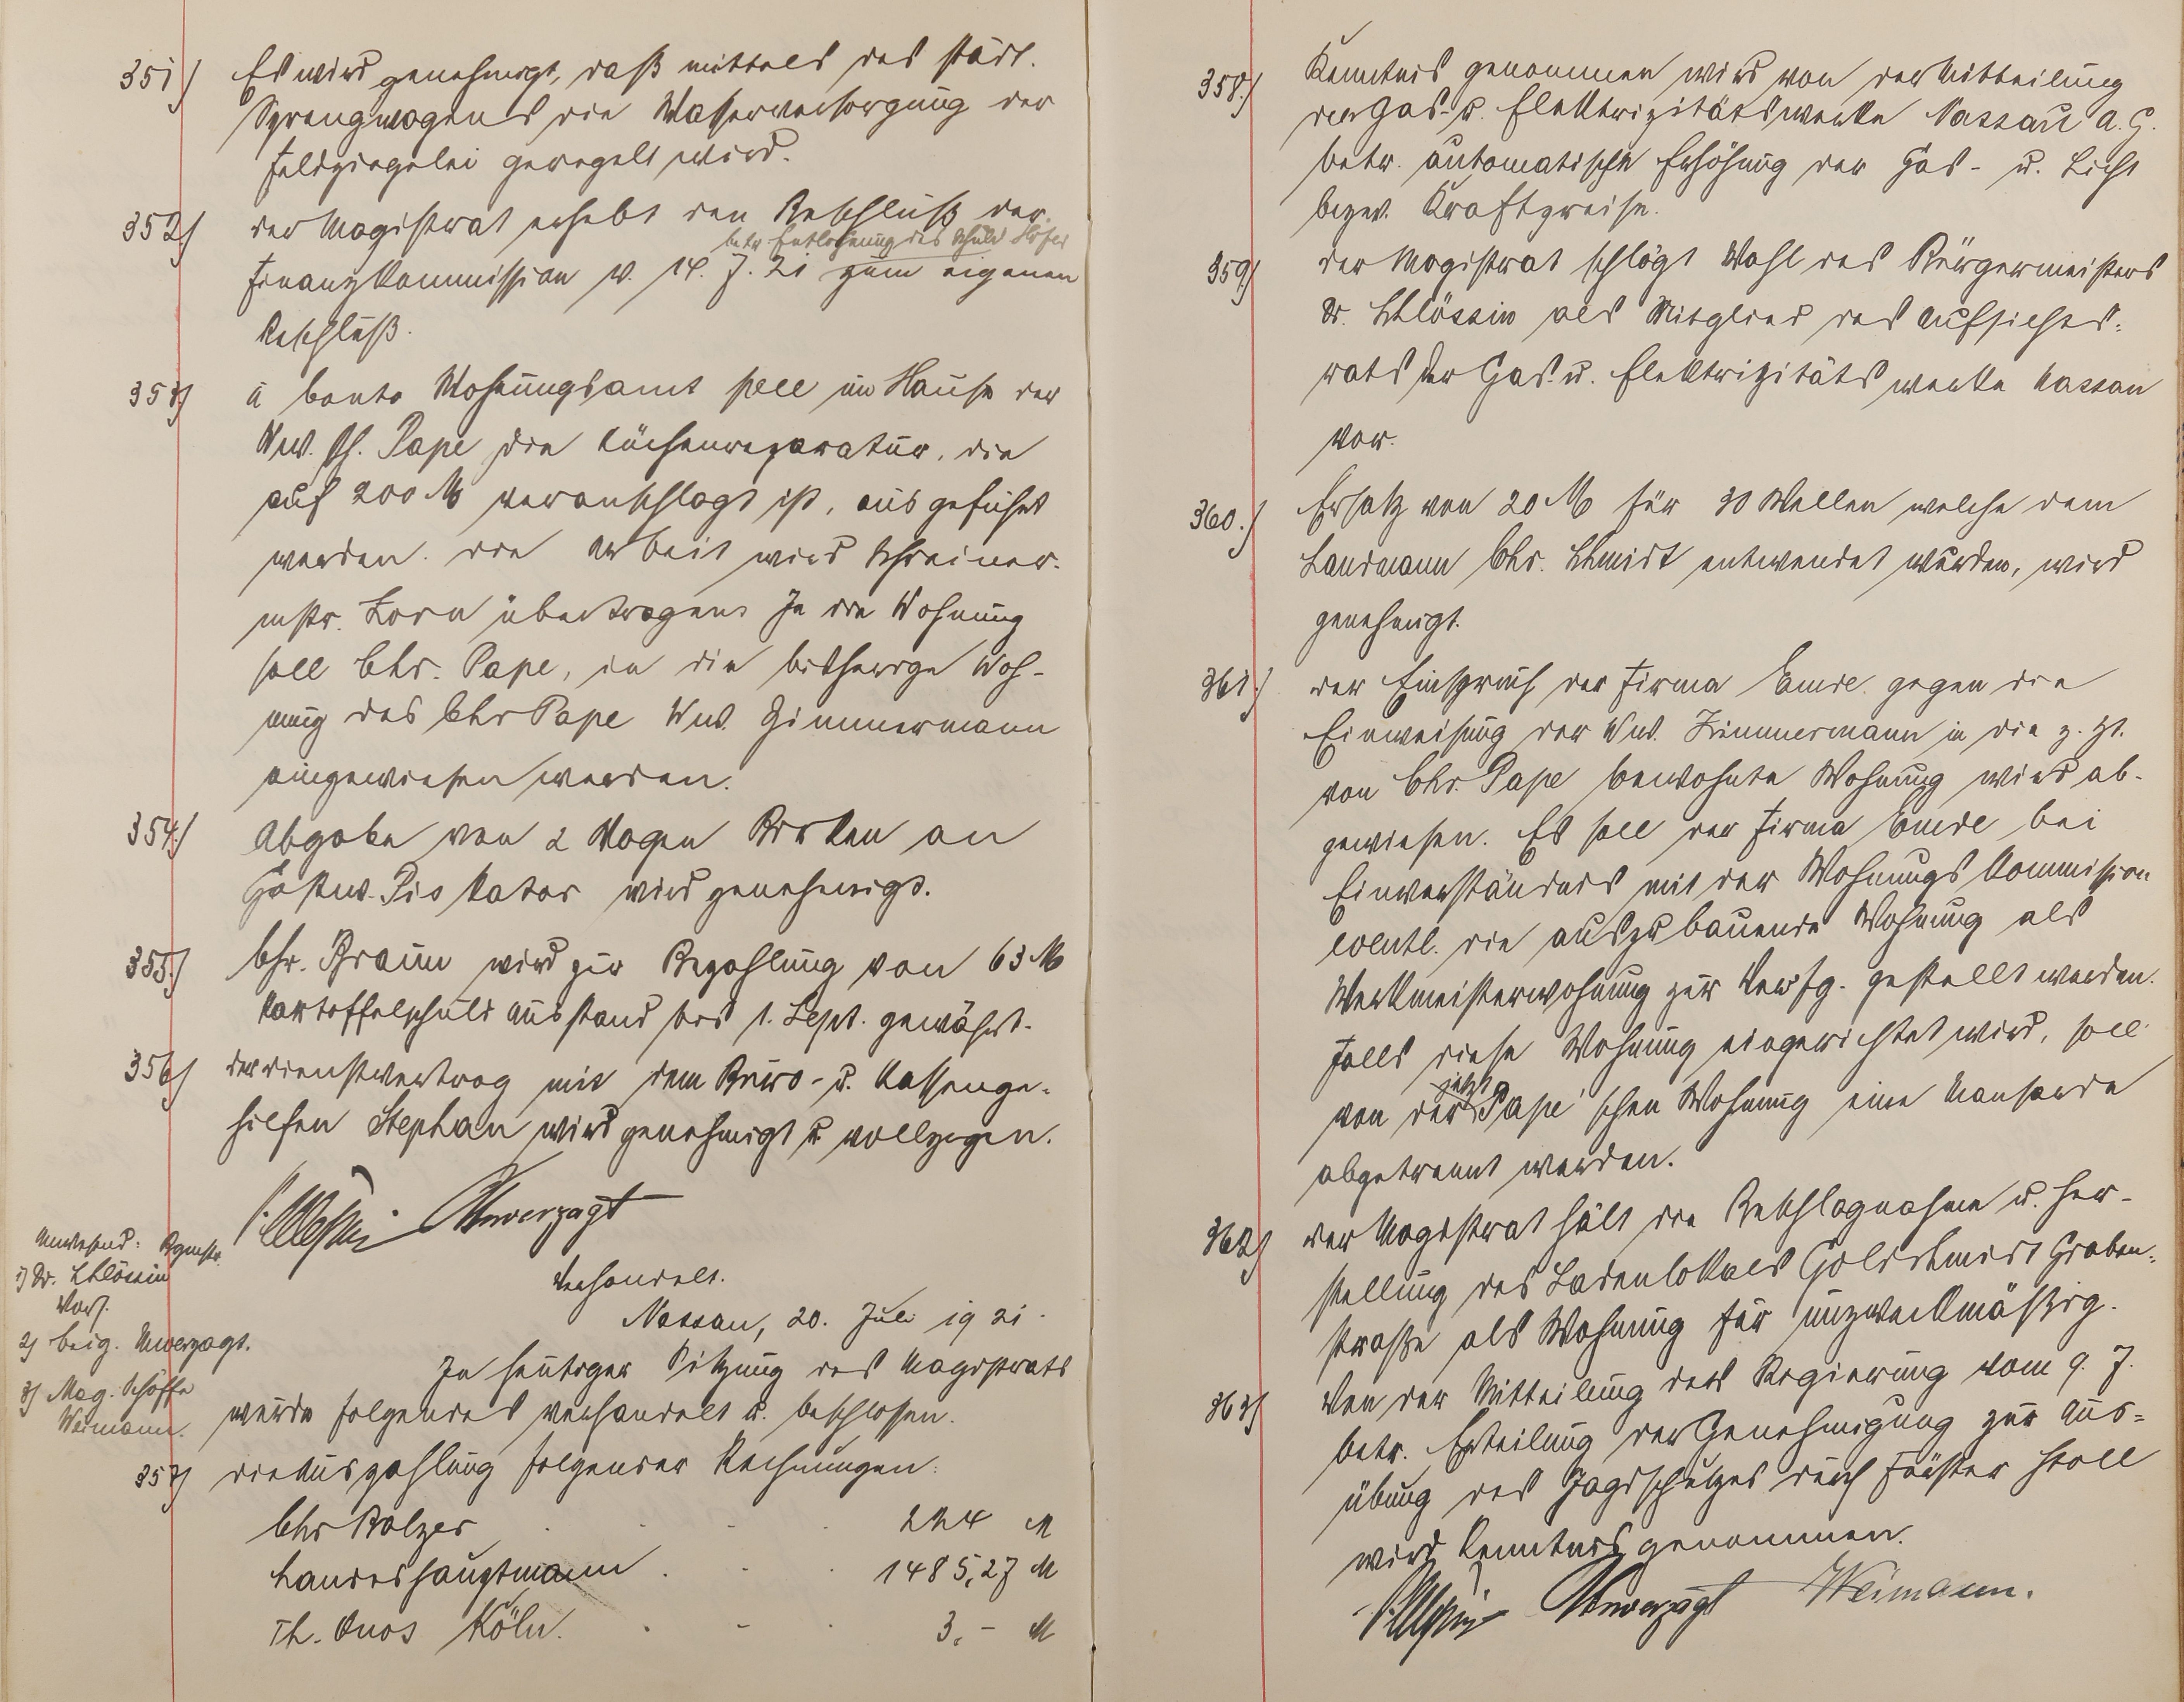 351) Es wird genehmigt, daß mittels des städt.
Sprengwagens die Wasserversorgung der
Feldziegelei geregelt wird.
352) Der Magistrat erhebt den Beschluß der
betr. Entlohnung des
Finanzkommission v. 14. 7. 21 zum eigenen
Beschluß.
353) à Conto Wohnungsamt soll im Hause der
Ww. Ph. Pape die Küchenreparatur, die
auf 200 M veranschlagt ist, ausgeführt
werden. Die Arbeit wird Schreiner-
mstr. Lorn übertragen. In die Wohnung
soll Chr. Pape, in die bisherige Woh-
nung des Chr Pape Ww. Zimmermann
eingewiesen werden.
354.) Abgabe von 2 Wagen Birken an
Gastw. Piskator wird genehmigt.
355.) Chr. Braun wird zur Bezahlung von 63 M
Kartoffelschuld Ausstand bis 1. Sept. gewährt.
356) Der Dienstvertrag mit dem Büro- u. Kassenge-
hilfen Stephan wird genehmigt u. vollzogen.
Unverzagt
Anwesend: Bgmstr.
1) Dr. Schlössin
Vors.
2) Beig. Unverzagt.
3) Mag. Schöffe
Weimann.
Verhandelt.
Nassau, 20. Juli 1921.
In heutiger Sitzung des Magistrats
wurde folgendes verhandelt u. beschlossen.
357) Die Auszahlung folgender Rechnungen:
Chr Balzer 224 M
Landeshauptmann 1485,27 M
Th. Köln. 3,- M
358.) Kenntnis genommen wird von der Mitteilung
der Gas- u. Elektrizitätswerke Nassau A. G.
betr. automatische Erhöhung der Gas- u. Licht
bezw. Kraftpreise.
359) Der Magistrat schlägt Wahl des Bürgermeisters
Dr. Schlössin als Mitglied des Aufsichts-
rats der Gas- u. Elektrizitätswerke Nassau
vor.
360.) Ersatz von 20 M für 30 Wellen welche dem
Landmann Chr. Schmidt entwendet wurden, wird
genehmigt.
361.) Der Einspruch der Firma Emde gegen die
Einweisung der Ww. Zimmermann in die z. Zt.
von Chr. Pape bewohnte Wohnung wird ab-
gewiesen. Es soll der Firma Emde bei
Einverständnis mit der Wohnungskommission
eventl. die auszubauende Wohnung als
Werkmeisterwohnung zur Verfg. gestellt werden.
Falls diese Wohnung eingerichtet wird, soll
jetzt
von der Pape'schen Wohnung eine Mansarde
abgetrennt werden.
362) Der Magistrat hält die Beschlagnahme u. Her-
stellung des Ladenlokals Goldschmidt Graben-
straße als Wohnung für unzweckmäßig.
363) Von der Mitteilung der Regierung vom 9. 7.
betr. Erteilung der Genehmigung zur Aus-
übung des Jagdschutzes durch Förster Stoll
wird Kenntnis genommen.
Unverzagt Weimann.